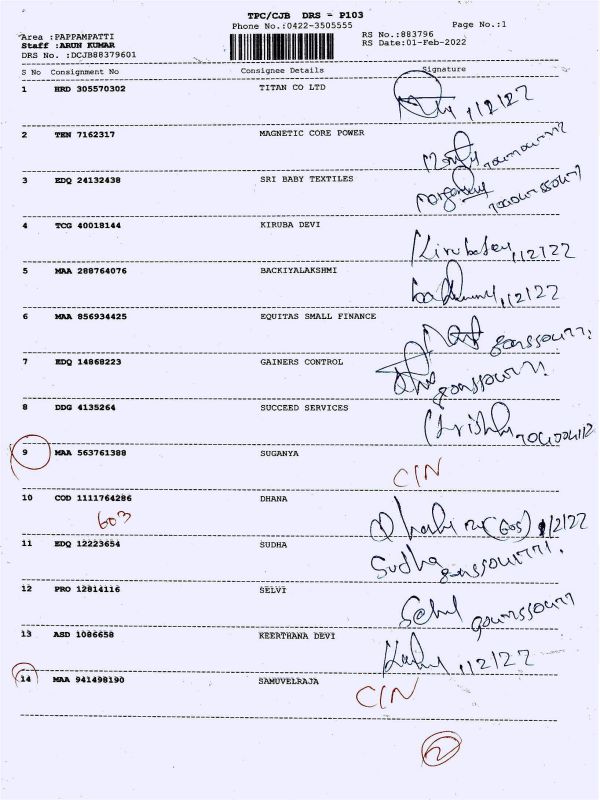 TPC/CJB DRS - P103
Phone No.:0422-3505555 Page No.:1
Area :PAPPAMPATTI RS No.:883796
Staff :ARUN KUMAR RS Date:01-Feb-2022
DRS No. :DCJB88379601
S No Consignment No Consignee Details Signature
1 HRD 305570302 TITAN CO LTD 1/2/22
2 TEN 7162317 MAGNETIC CORE POWER
3 EDQ 24132438 SRI BABY TEXTILES
4 TCG 40018144 KIRUBA DEVI 1/2/22
5 MAA 288764076 BACKIYALAKSHMI 1/2/22
6 MAA 856934425 EQUITAS SMALL FINANCE
7 EDQ 14868223 GAINERS CONTROL
8 DDG 4135264 SUCCEED SERVICES
9 MAA 563761388 SUGANYA C/N
10 COD 1111764286 DHANA 1/2/22
603
11 EDQ 12223654 SUDHA Sudha
12 PRO 12814116 SELVI
13 ASD 1086658 KEERTHANA DEVI 1/2/22
14 MAA 941498190 SAMUVELRAJA C/N
2